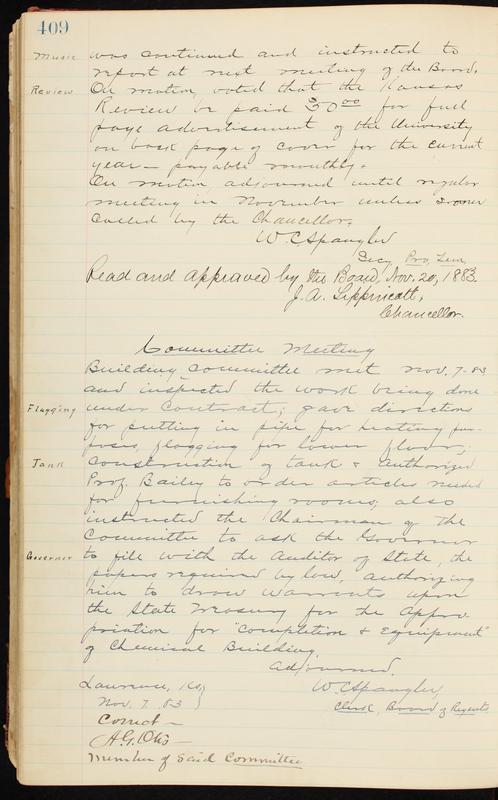 409
Music was continued and instructed to
report at next meeting of the Board.
Review On motion, voted that the Kansas
Review be paid $50 00 for full
page advertisement of the University
on back page of cover for the current
year — payable monthly.
On motion, adjourned until regular
meeting in November unless sooner
called by the Chancellor.
W. C. Spangler
Secy Pro. Tem.
Read and approved by the Board, Nov. 20, 1883.
J. A. Lippincott,
Chancellor.
Committee Meeting
Building Committee met Nov. 7-83
and inspected the work being done
Flagging under contract; gave directions
for putting in pipe for heating pur-
poses, flagging for lower floor;
Tank construction of tank & authorized
Prof. Bailey to order articles needed
for furnishing rooms, also
instructed the Chairman of the
Committee to ask the Governor
Governor to file with the Auditor of State, the
papers required by law, authorizing
him to draw warrants upon
the State Treasury for the appro-
priation for "Completion & Equipment"
of Chemical Building.
Adjourned.
Lawrence, Ks } W C Spangler
Nov. 7. 83 Clerk, Board of Regents
Correct —
A. G. Otis —
Member of said Committee